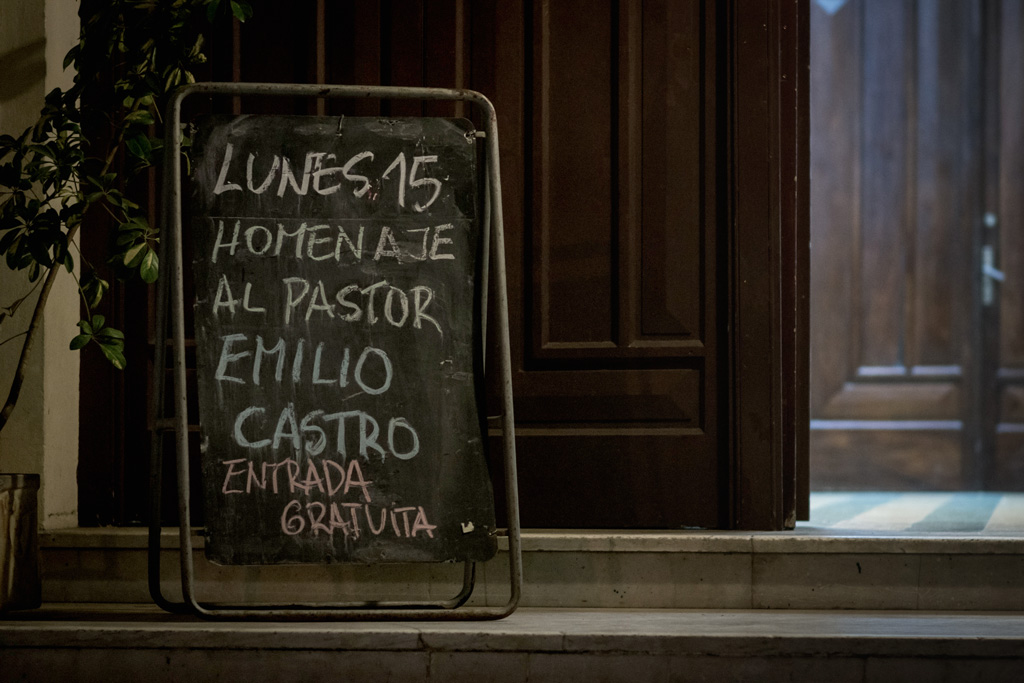 LUNES 15
HOMENAJE
AL PASTOR
EMILIO
CASTRO
ENTRADA
GRATUITA